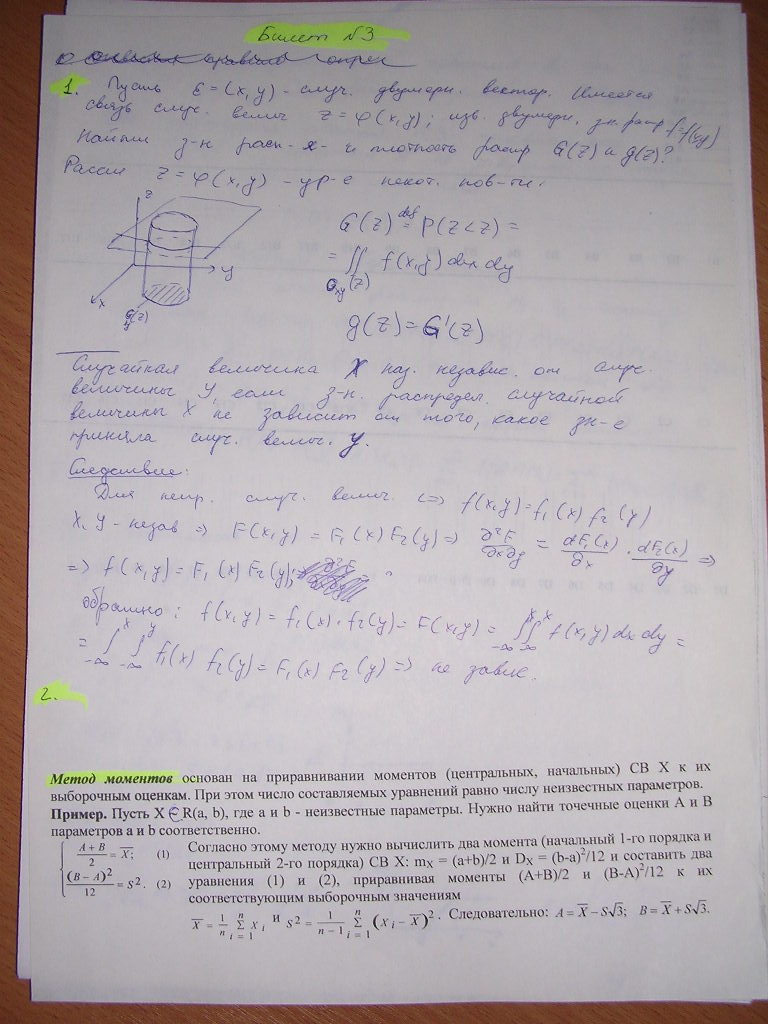 Билет №3
1. Пусть ε = (x, y) - случ. двумерн. вектор. Имеется
связь случ. велич z = φ(x,y); изв. двумерн. з-н. распр f=f(x,y)
Найти з-н расп-я и плотность распр G(z) и g(z)?
Рассм z = φ(x,y) - ур-е некот. пов-ти.
z
y
x
G(z) def= P(Z<z) =
= ∬ f(x,y) dx dy
Gxy(z)
g(z) = G'(z)
Случайная величина X наз. независ. от случ.
величины Y, если з-н. распредел. случайной
величины X не зависит от того, какое зн-е
приняла случ. велич. y.
Следствие:
Для непр. случ. велич. <=> f(x,y)=f₁(x) f₂(y)
X, Y - незав => F(x,y) = F₁(x) F₂(y) => ∂²F/∂x∂y = dF₁(x)/∂x · dF₂(x)/∂y =>
=> f(x,y) = F₁(x) F₂(y);
обратно: f(x,y) = f₁(x)·f₂(y) = F(x,y) = ∫∫ f(x,y) dx dy =
= ∫ ∫ f₁(x) f₂(y) = F₁(x) F₂(y) => не завис.
2.
Метод моментов основан на приравнивании моментов (центральных, начальных) СВ X к их
выборочным оценкам. При этом число составляемых уравнений равно числу неизвестных параметров.
Пример. Пусть X ∈ R(a, b), где a и b - неизвестные параметры. Нужно найти точечные оценки A и B
параметров a и b соответственно.
{ (A+B)/2 = X̅; (1) Согласно этому методу нужно вычислить два момента (начальный 1-го порядка и
центральный 2-го порядка) СВ X: mx = (a+b)/2 и Dx = (b-a)²/12 и составить два
(B−A)²/12 = S². (2) уравнения (1) и (2), приравнивая моменты (A+B)/2 и (B-A)²/12 к их
соответствующим выборочным значениям
X̅ = 1/n Σ_{i=1}^{n} X_i и S² = 1/(n−1) Σ_{i=1}^{n} (X_i − X̅)². Следовательно: A = X̅ − S√3; B = X̅ + S√3.